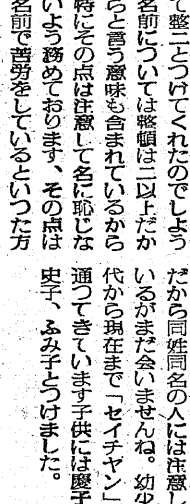 て整二とつけてくれたのでしよう
名前については整頓は二以上だか
らと言う意味も含まれているから
特にその点は注意して名に恥じな
いよう務めております、その点は
名前で苦労をしているといつた方
だから同姓同名の人には注意し
いるがまだ会いませんね。幼少
代から現在まで「セイチヤン」
通つてきています子供には慶子
史子、ふみ子とつけました。